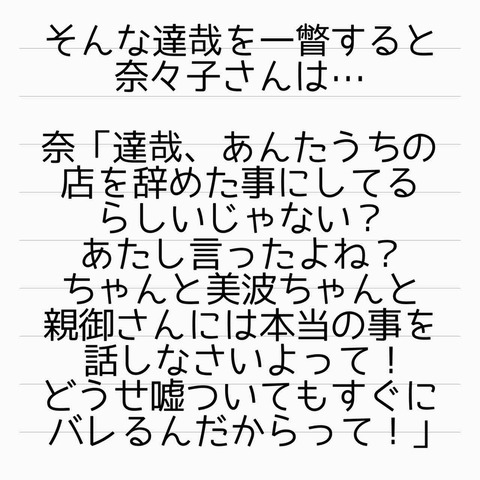 そんな達哉を一瞥すると
奈々子さんは…
奈「達哉、あんたうちの
店を辞めた事にしてる
らしいじゃない？
あたし言ったよね？
ちゃんと美波ちゃんと
親御さんには本当の事を
話しなさいよって！
どうせ嘘ついてもすぐに
バレるんだからって！」